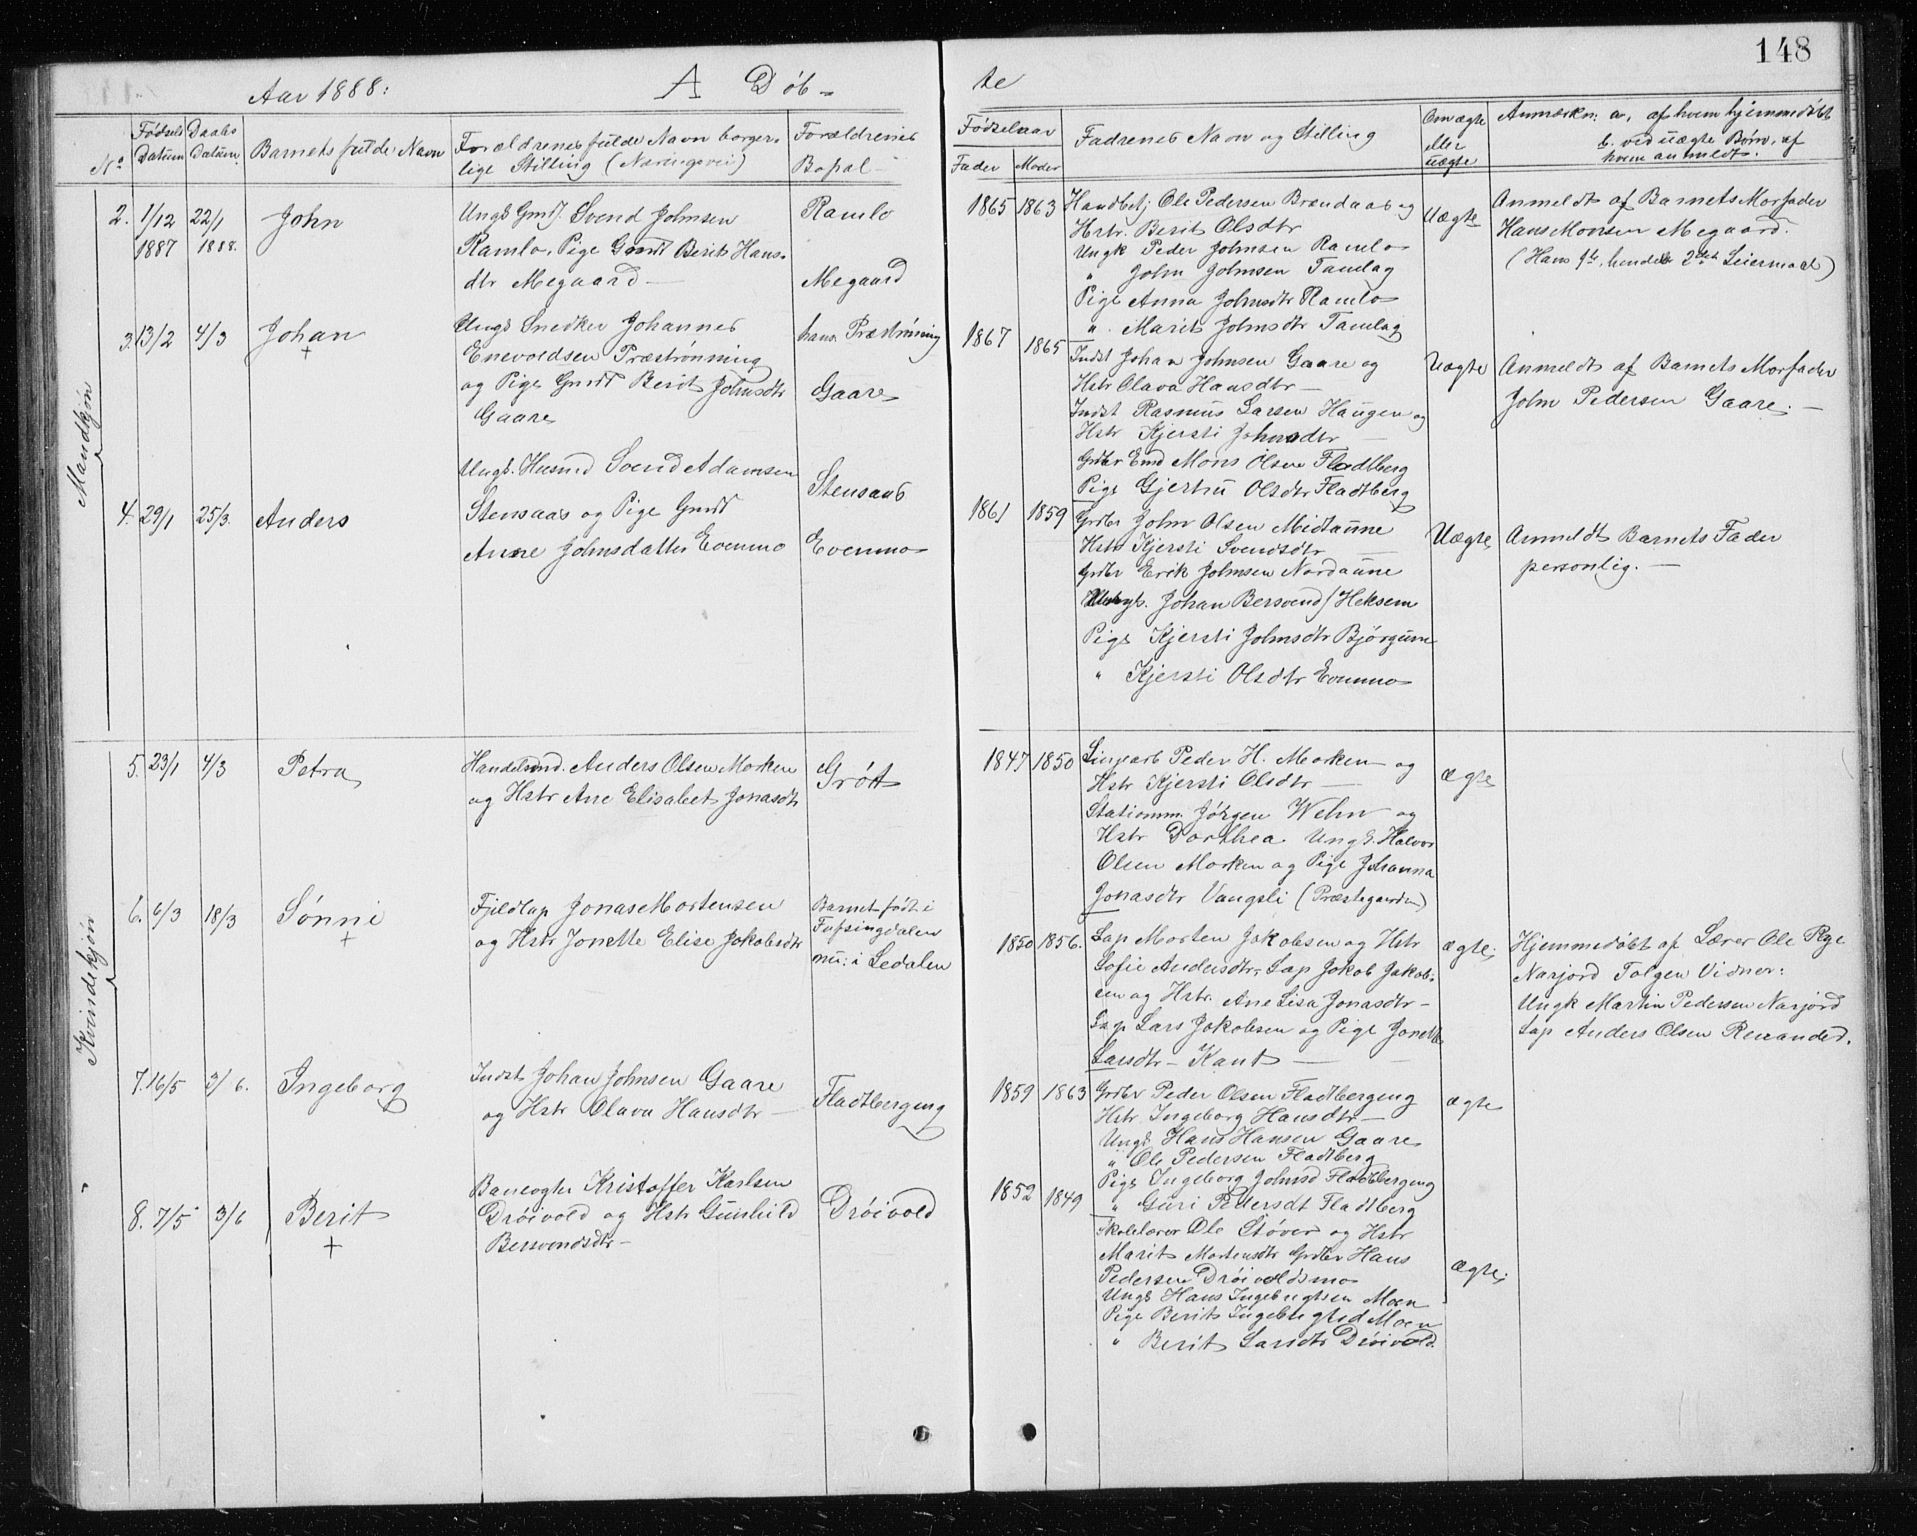 148
Aar 1888:
A Døb-
te
No
Fødsels Datum
Daabs Datum
Barnets fulde Navn
Forældrenes fulde Navn borger-
lige Stilling (Næringsvei)
Forældrenes
Bopæl
Fødselsaar
Fader Moder
Fadrenes Navn og Stilling
Om ægte
eller
uægte
Anmærkn: a, af hvem hjemmedøbt
b. ved uægte Børn, af
hvem anmeldt.
Mandkjøn
2. 1/12 22/1 John
1887 1888.
Ungk Gmdf. Svend Johnsen
Ramlo, Pige Gmdt Berit Hans-
dtr Megaard
Ramlo
Megaard
1865 1863
Handbetj Ole Pedersen Brendaas og
Hstr. Berit Olsdtr
Ungk Peder Johnsen Ramlo
" John Johnsen Tamlag
Pige Anna Johnsdtr Ramlo
" Marit Johnsdtr Tamlag
Uægte
Anmeldt af Barnets Morfader
Hans Monsen Megaard.
(Hans 1te, hendes 2det Leiermaal)
3. 13/2 4/3 Johan
+
Ungk Snedker Johannes
Enevoldsen Præstrønning
og Pige Gmdt Berit Johnsdtr
Gaare
hans: Præstrønning
Gaare
1867 1865
Indst Johan Johnsen Gaare og
Hstr Olava Hansdtr
Indst Rasmus Larsen Haugen og
Hstr Kjersti Johnsdtr
Grdbr Emd Mons Olsen Fladtberg
Pige Gjertru Olsdtr Fladtberg
Uægte
Anmeldt af Barnets Morfader
John Pedersen Gaare.
4. 29/1 25/3. Anders
Ungk. Husmd Svend Adamsen
Stensaas og Pige Gmdt
Anne Johnsdatter Evenmo
Stensaas
Evenmo
1861 1859
Grdbr John Olsen Midtaune
Hstr Kjersti Svendsdtr
Grdbr Erik Johnsen Nordaune
Ungk. Johan Bersvend/Heksem
Pige Kjersti Johnsdtr Bjørgum
" Kjersti Olsdtr Evenmo
Uægte
Anmeldt Barnets Fader
personlig.
Kvindekjøn
5. 23/1 4/3 Petra
Handelsmd. Anders Olsen Morken
og Hstr Ane Elisabet Jonasdtr
Grøtt
1847 1850
Linearb Peder H. Morken og
Hstr Kjersti Olsdtr
Stationm. Jørgen Wehn og
Hstr Dorthea. Ungk. Halvor
Olsen Morken og Pige Johanna
Jonasdtr Vangsli (Præstegaarden)
ægte
6. 6/3 18/3 Sønni
+
Fjeldlap Jonas Mortensen
og Hstr Jonette Elise Jakobsdtr
Barnet født i
Fufsingdalen
nu: i Ledalen
1850 1856.
Lap Morten Jakobsen og Hstr
Sofie Andersdtr, Lap Jakob Jakob-
sen og Hstr. Ane Lisa Jonasdtr
Lap Lars Jakobsen og Pige Jonette
Larsdtr Kant
ægte
Hjemmedøbt af Lærer Ole Rye
Narjord Tolgen Vidner:
Ungk Martin Pedersen Narjord
Lap Anders Olsen Renander.
7. 16/5 3/6. Ingeborg
Indst Johan Johnsen Gaare
og Hstr Olava Hansdtr
Fladtbergeng
1859 1863
Grdbr Peder Olsen Fladtbergeng
Hstr Ingeborg Hansdtr
Ungk Hans Hansen Gaare
" Ole Pedersen Fladtberg
Pige Ingeborg Johnsd Fladtbergeng
" Guri Pedersdt Fladtberg
ægte
8. 7/5 3/6 Berit
+
Banevogter Kristoffer Karlsen
Drøivold og Hstr Gunhild
Bersvendsdtr
Drøivold
1852 1849
Skolelærer Ole Støver og Hstr
Marit Mortensdtr Grdbr Hans
Pedersen Drøivoldsmo
Ungk Hans Ingebrigtsen Moen
Pige Berit Ingebrigtsd Moen
" Berit Larsdtr Drøivold.
ægte